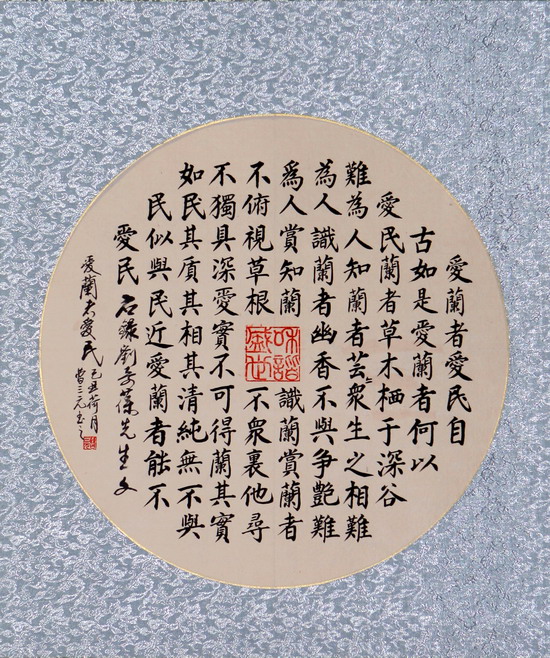 愛蘭者愛民自
古如是愛蘭者何以
愛民蘭者草木栖于深谷
難為人知蘭者芸〻衆生之相難
為人識蘭者幽香不與争艷難
爲人賞知蘭 識蘭賞蘭者
不俯視草根 不衆裏他尋
不獨具深愛實不可得蘭其實
如民其质其相其清純無不與
民似與民近愛蘭者能不
愛民 石 劉 先生文
爱蘭者愛民 己丑荷月
曾三元书
和諧
盛世